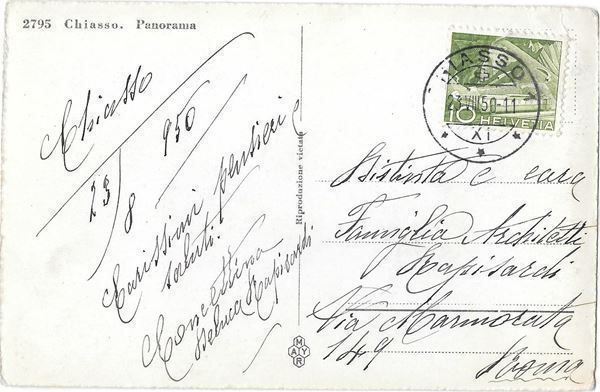 2795 Chiasso. Panorama
Chiasso
23/8 950
Carissimi pensieri e
saluti.
Concettina
Deluca Rapisardi
Riproduzione vietata
MAYR
CHIASSO 1
23.VIII.50-11
XI
10 HELVETIA
Distinta e cara
Famiglia Architetti
Rapisardi
Via Marmorata
149
Roma